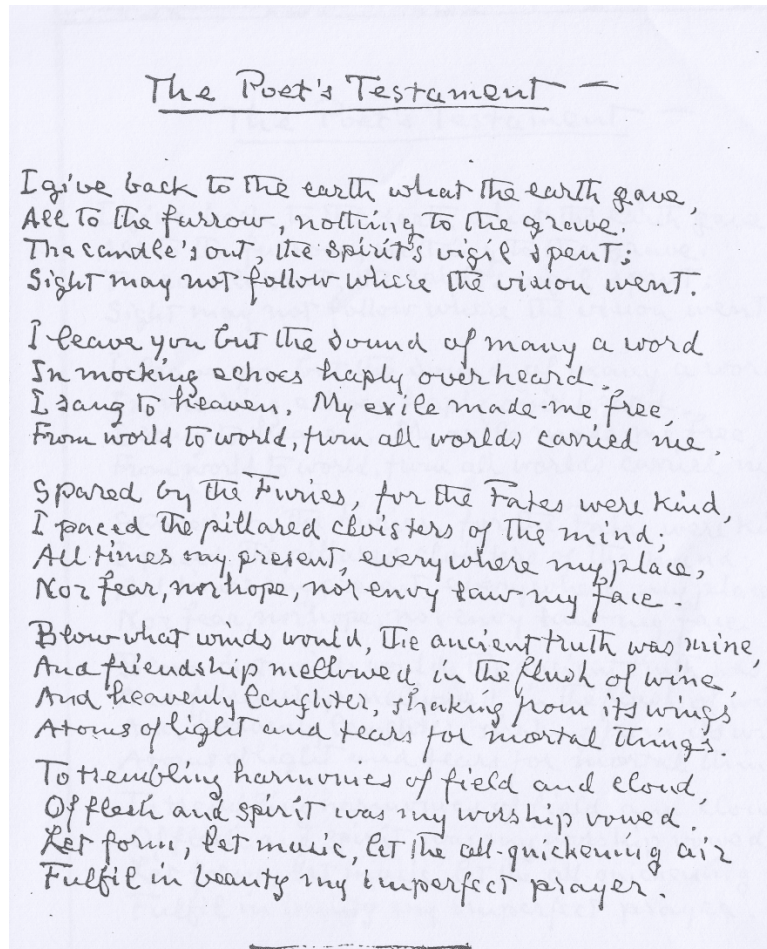 The Poet's Testament —
I give back to the earth what the earth gave,
All to the furrow, nothing to the grave.
The candle's out, the spirit's vigil spent;
Sight may not follow where the vision went.
I leave you but the sound of many a word
In mocking echoes haply overheard.
I sang to heaven. My exile made me free
From world to world, from all worlds carried me.
Spared by the Furies, for the Fates were kind,
I paced the pillared cloisters of the mind.
All times my present, everywhere my place,
Nor fear, nor hope, nor envy saw my face.
Blow what winds would, the ancient truth was mine,
And friendship mellowed in the flush of wine,
And heavenly laughter, shaking from its wings
Atoms of light and tears for mortal things.
To trembling harmonies of field and cloud,
Of flesh and spirit was my worship vowed
Let form, let music, let the all-quickening air
Fulfil in beauty my imperfect prayer.